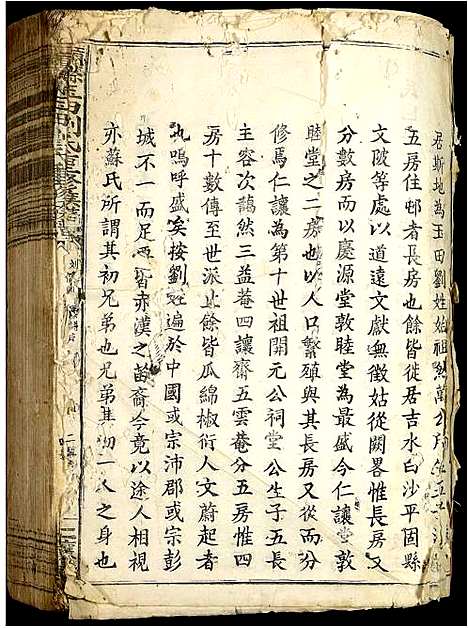 居斯地為玉田劉姓始祖
五房住邨者長房也餘皆徙居吉水白沙平固縣
文陂等處以道遠文獻無徵姑從闕畧惟長房又
分數房而以慶源堂敦睦堂為最盛今仁讓堂敦
睦堂之二房也以人口繁殖與其長房又從而分
修焉仁讓為第十世祖開元公祠堂公生子五長
主容次藹然三益菴四讓齋五雲菴分五房惟四
房十數傳至世派止餘皆瓜綿椒衍人文蔚起者
也嗚呼盛矣按劉姓遍於中國或宗沛郡或宗彭
城不一而足要皆赤漢之苗裔今竟以途人相視
亦蘇氏所謂其初兄弟也兄弟其初一人之身也